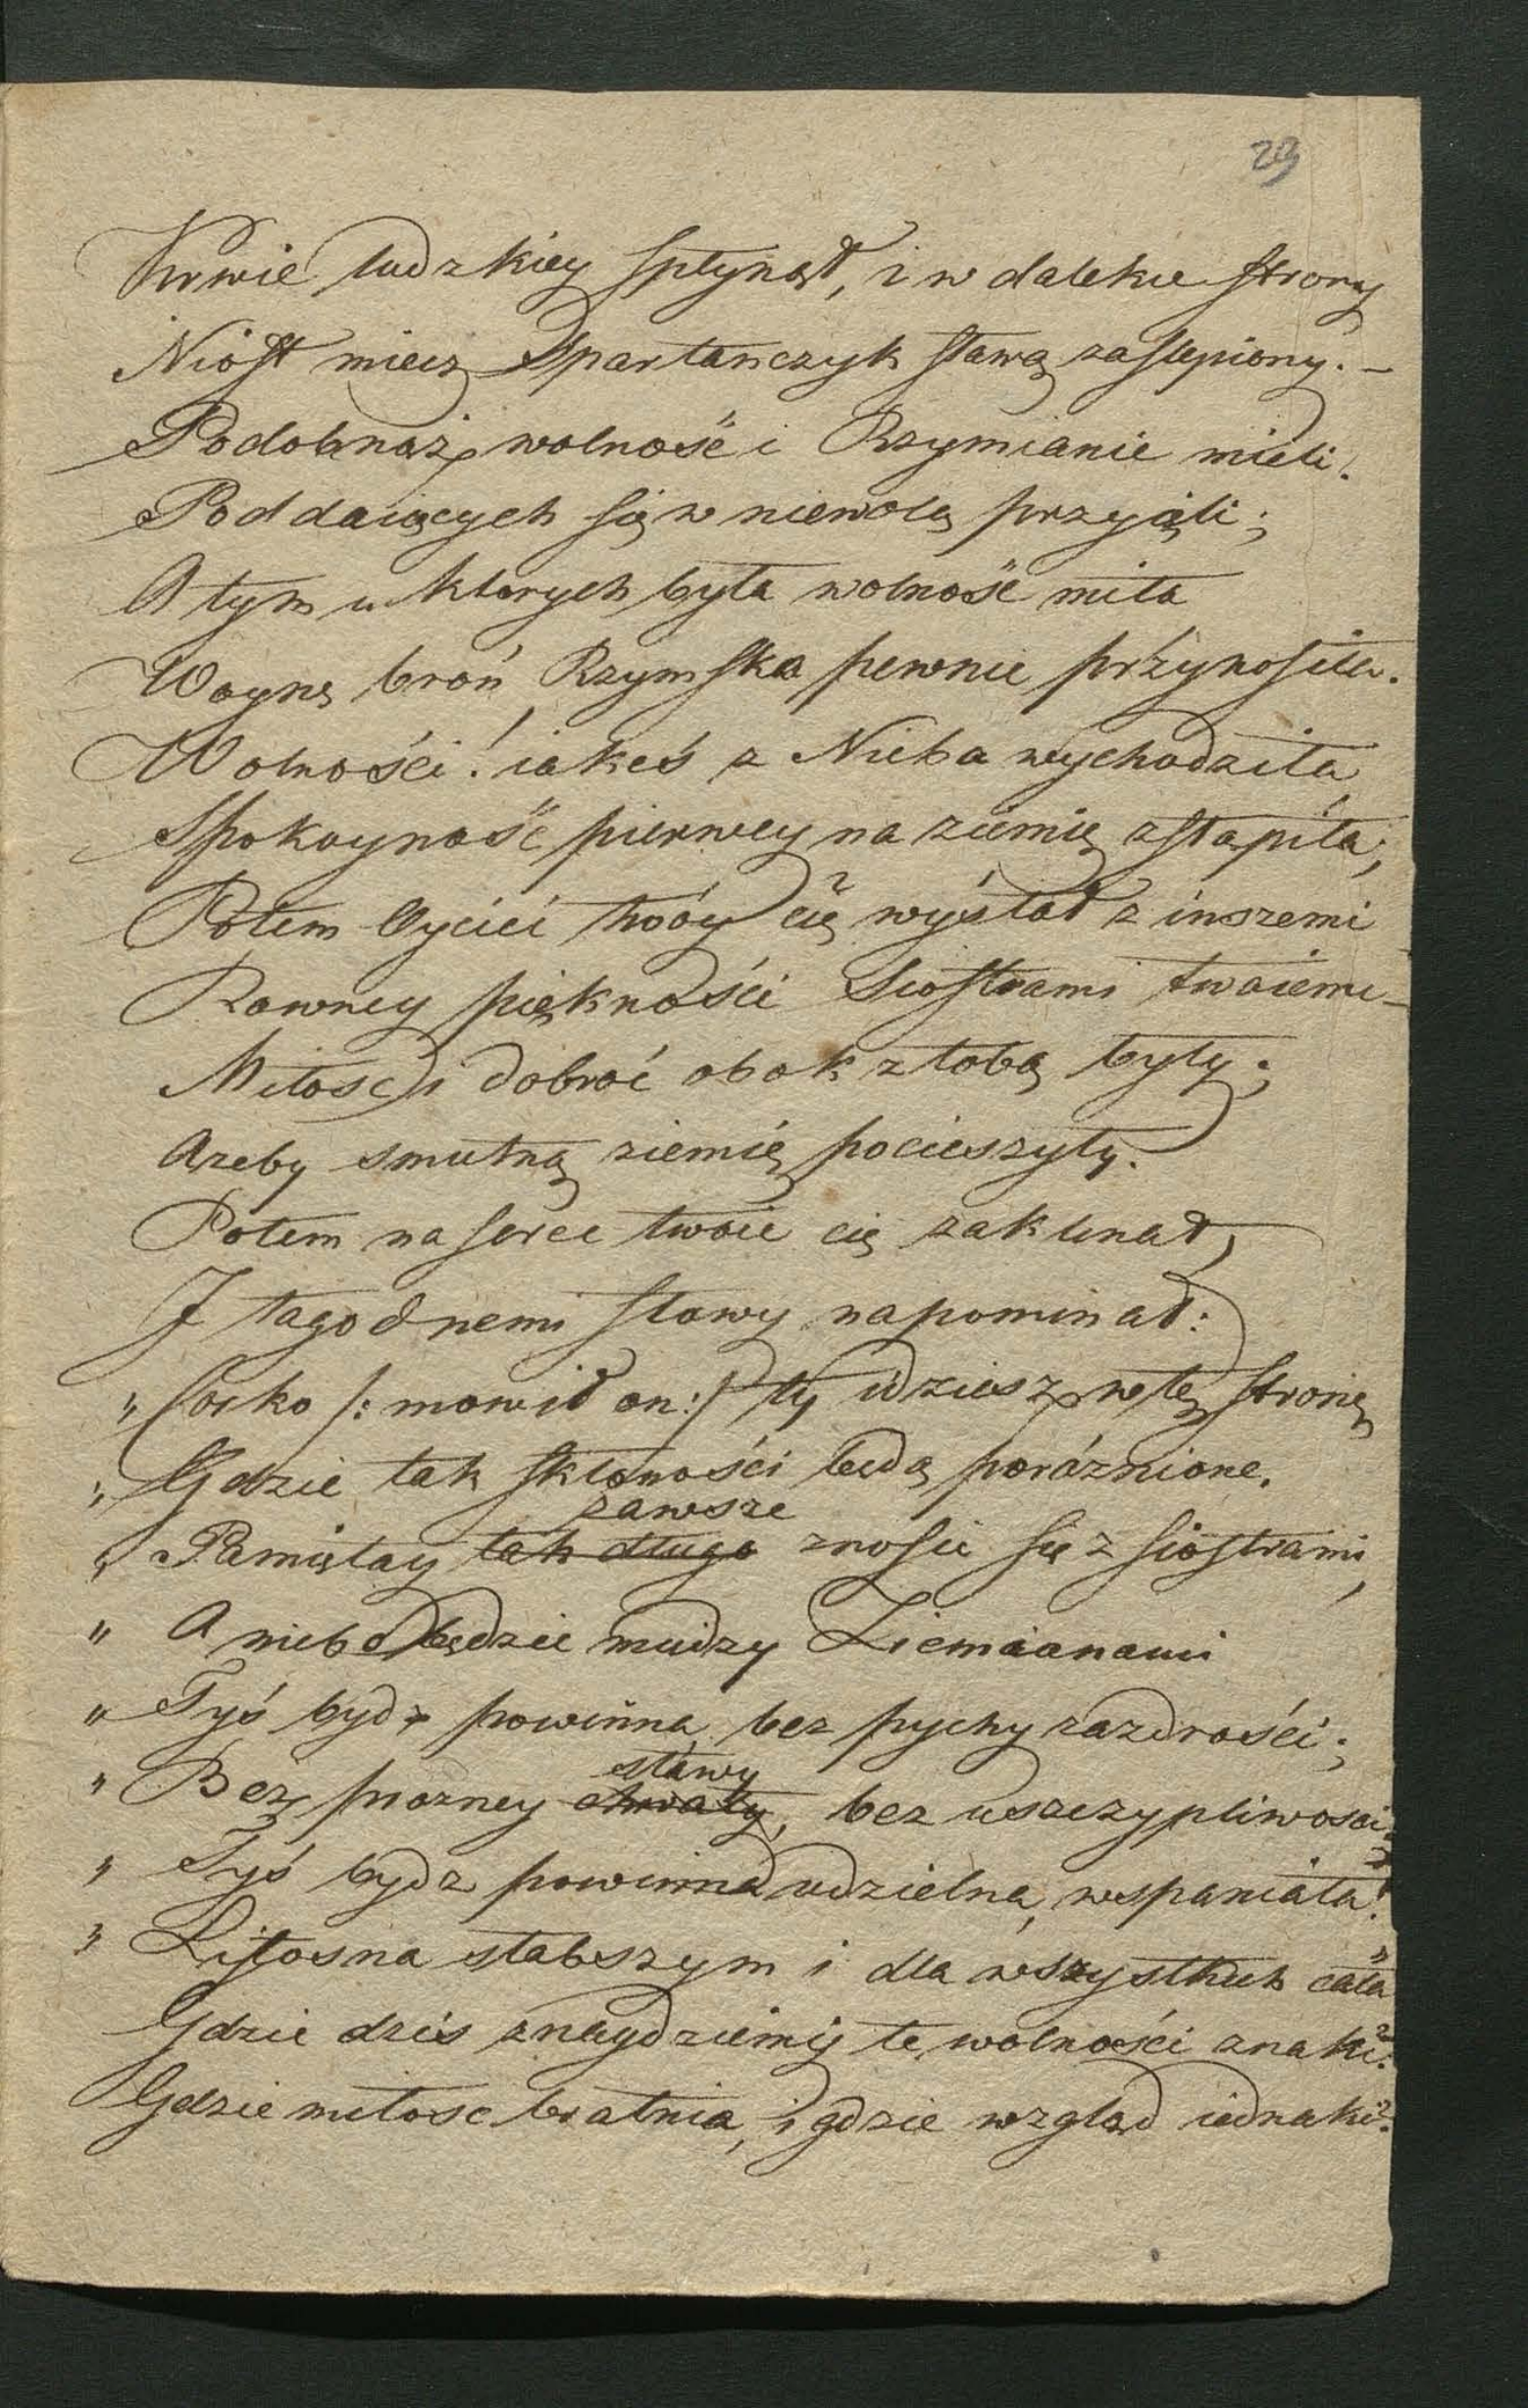 29
Krwie ludzkiey spłynął, i w dalekie strony
Niósł miecz Spartanczyk sławą zaslepiony. –
Podobnąż wolność i Rzymianie mieli.
Poddaiących się w niewolą przyięli;
A tym u ktorych była wolność miła
Woynę broń Rzymska pewnie przynosiła.
Wolności! iakeś z Nieba wychodziła
Spokoyność pierwey na ziemię zstąpiła;
Potem Oyciec twóy cię wysłał z inszemi
Rowney piękności Siostrami twoiemi –
Miłosc i dobroć obok z tobą były;
Azeby smutną ziemię pocieszyły.
Potem na serce twoie cię zaklinał,
I łagodnemi słowy napominał:
„ Corko /: mowił on :/ ty idziesz w tę stronę
„ Gdzie tak skłoności będą poróżnione.
zawsze
„ Pamiętay tak długo znosić się z siostrami,
„ A niebo będzie miedzy Ziemianami
„ Tyś bydz powinna bez pychy zazdrości;
sławy
„ Bez prozney chwały, bez uszczypliwosci.
„ Tyś bydz powinna udzielna, wspaniała!
„ Litosna słabszym i dla wszystkich cała"
Gdzie dzis znaydziemy te wolności znaki?
Gdzie miłosc bratnia, i gdzie wzgląd iednaki?